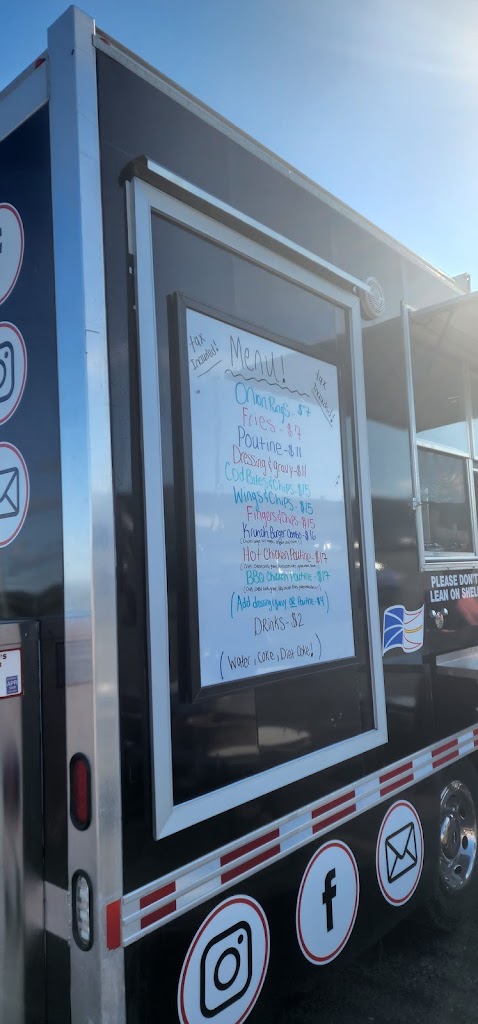 tax
Included!
Menu!
tax
Onion Rings - $7
Fries - $7
Poutine - $11
Dressing & gravy - $11
Cod Bites & Chips - $15
Wings & Chips - $15
Fingers & Chips - $15
Krunch Burger Combo - $16
Hot Chicken Poutine - $17
BBQ Chicken Poutine - $17
(Add dressing, gravy or Poutine - $4)
Drinks - $2
(Water, Coke, Diet Coke!)
PLEASE DON'T
LEAN ON SHEL
f